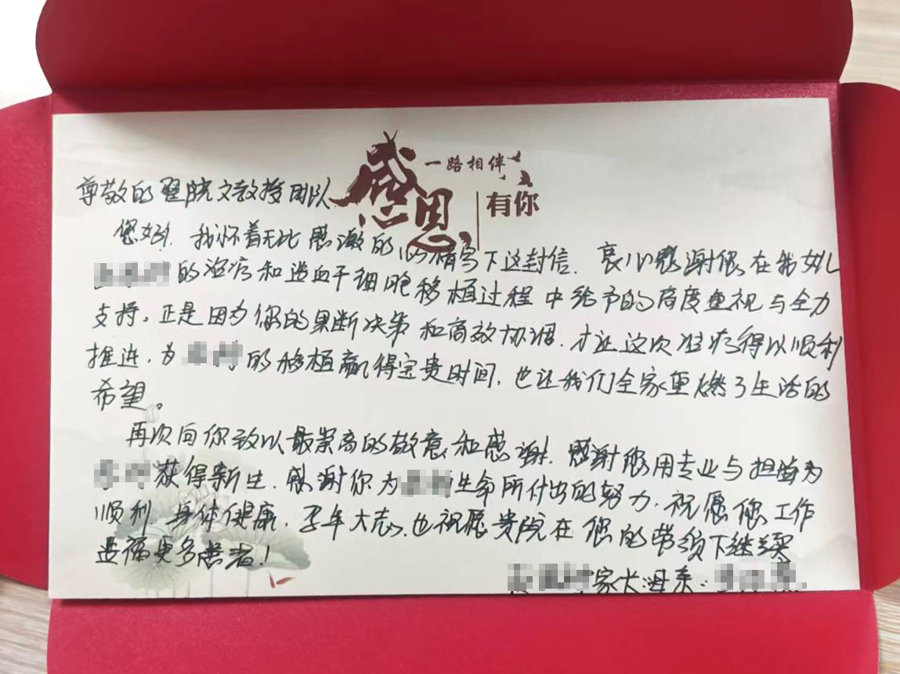 感恩
一路相伴
有你
尊敬的翟院文教授团队
您好！我怀着无比感激的心情写下这封信。衷心感谢您在我女儿
的治疗和造血干细胞移植过程中给予的高度重视与全力
支持。正是因为你的果断决策和高效协调，才让这次治疗得以顺利
推进，为的移植赢得宝贵时间，也让我们全家重燃了生活的
希望。
再次向你致以最崇高的敬意和感谢！感谢您用专业与担当为
获得新生，感谢你为生命所付出的努力，祝愿您工作
顺利，身体健康，也祝愿贵院在您的带领下继续
造福更多患者！
家长母亲：